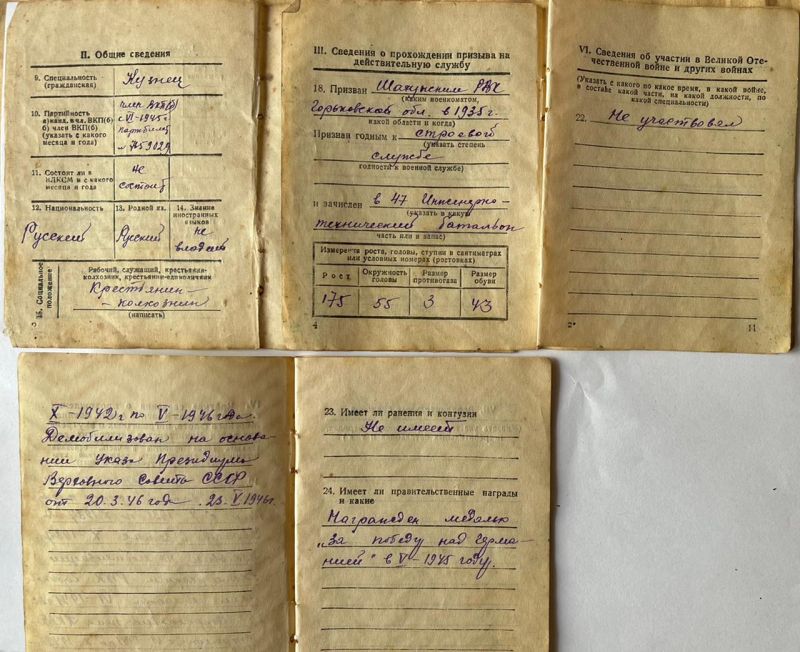 II. Общие сведения
9. Специальность
(гражданская)
Кузнец
10. Партийность
а) канд. в чл. ВКП(б)
б) член ВКП(б)
(указать с какого
месяца и года)
член ВКП(б)
с VI-1945 г
партбилет
11. Состоит ли в
ВЛКСМ и с какого
месяца и года
не
состоит
12. Национальность
Русский
13. Родной яз.
Русский
14. Знание
иностранных
языков
не
владеет
15. Социальное
положение
Рабочий, служащий, крестьянин-
колхозник, крестьянин-единоличник
Крестьянин-
-колхозник
(написать)
3
III. Сведения о прохождении призыва на
действительную службу
18. Призван Шахунским РВК
(каким военкоматом,
Горьковской обл. в 1935 г.
какой области и когда)
Признан годным к строевой
(указать степень
службе
годности к военной службе)
и зачислен в 47 Инженерно-
(указать в какую
технический батальон
часть или в запас)
Измерения роста, головы, ступни в сантиметрах
или условных номерах (ростовках)
Рост
Окружность
головы
Размер
противогаза
Размер
обуви
175 55 3 43
4
VI. Сведения об участии в Великой Оте-
чественной войне и других войнах
(Указать с какого по какое время, в какой войне,
в составе какой части, на какой должности, по
какой специальности)
22. Не участвовал
2*
11
X-1942 г по V-1946 года.
Демобилизован на основа-
нии Указа Президиума
Верховного Совета СССР
от 20.3.46 года. 23.V.1946г.
23. Имеет ли ранения и контузии
Не имеет
24. Имеет ли правительственные награды
и какие
Награжден медалью
„За победу над Герма-
нией" в V-1945 году.